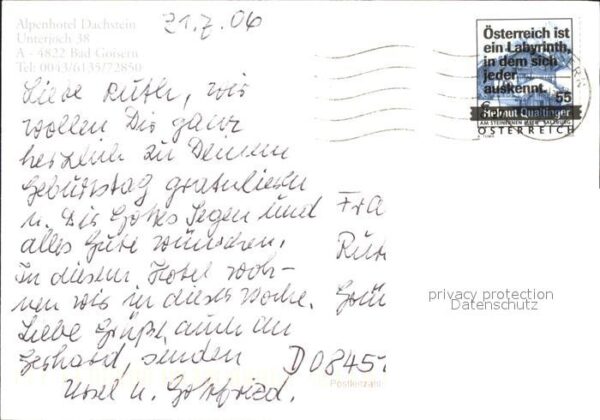 Alpenhotel Dachstein
Unterjoch 38
A - 4822 Bad Goisern
Tel: 0043/6135/72850
21.7.06
Österreich ist
ein Labyrinth,
in dem sich
jeder
auskennt.
55
Helmut Qualtinger
ÖSTERREICH
Liebe Ruth, wir
wollen Dir ganz
herzlich zu Deinem
Geburtstag gratulieren
u. Dir Gottes Segen und
alles Gute wünschen.
In diesem Hotel woh-
nen wir in dieser Woche.
Liebe Grüße, auch an
Gerhard, senden
Ursel u. Gottfried.
Fra
Ruth
D0845
Postleitzahl
privacy protection
Datenschutz